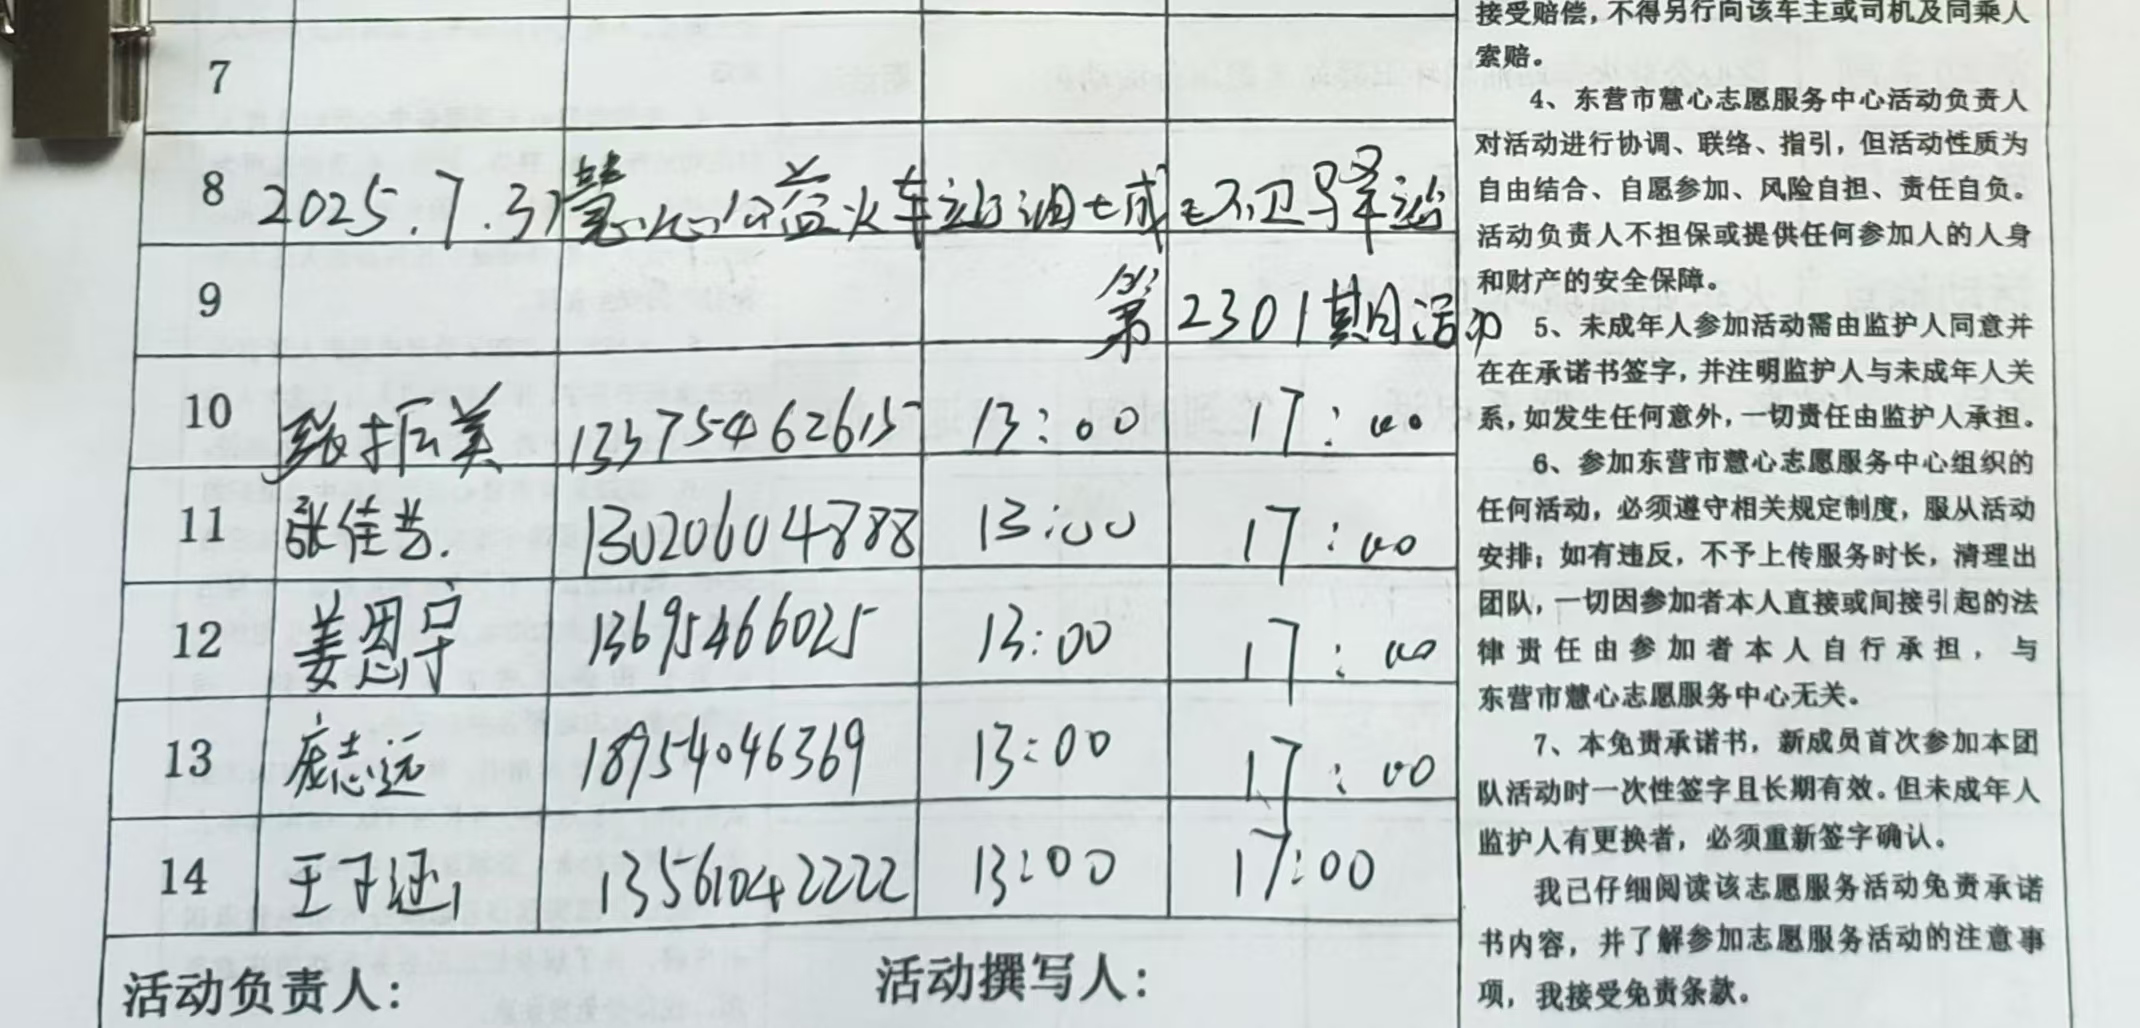 7
8 2025.7.31慧心公益火车站油城e环卫驿站
9 第2301期活动
10 张振美 13375462615 13:00 17:00
11 张佳艺. 13020604888 13:00 17:00
12 姜恩宁 13695466025 13:00 17:00
13 庞志远 18954046369 13:00 17:00
14 王子涵 13561042222 13:00 17:00
活动负责人: 活动撰写人:
接受赔偿，不得另行向该车主或司机及同乘人
索赔。
4、东营市慧心志愿服务中心活动负责人
对活动进行协调、联络、指引，但活动性质为
自由结合、自愿参加、风险自担、责任自负。
活动负责人不担保或提供任何参加人的人身
和财产的安全保障。
5、未成年人参加活动需由监护人同意并
在在承诺书签字，并注明监护人与未成年人关
系，如发生任何意外，一切责任由监护人承担。
6、参加东营市慧心志愿服务中心组织的
任何活动，必须遵守相关规定制度，服从活动
安排；如有违反，不予上传服务时长，清理出
团队，一切因参加者本人直接或间接引起的法
律责任由参加者本人自行承担，与
东营市慧心志愿服务中心无关。
7、本免责承诺书，新成员首次参加本团
队活动时一次性签字且长期有效。但未成年人
监护人有更换者，必须重新签字确认。
我已仔细阅读该志愿服务活动免责承诺
书内容，并了解参加志愿服务活动的注意事
项，我接受免责条款。